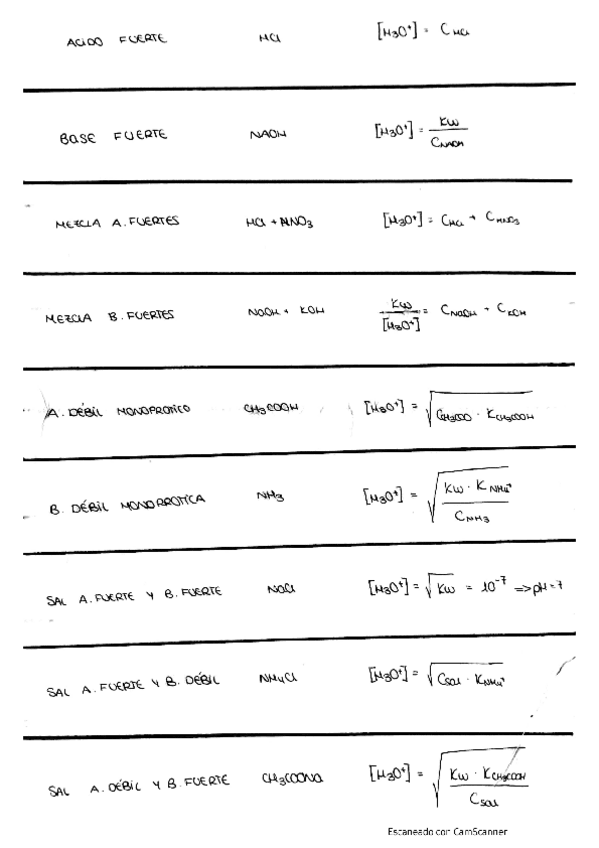 ACIDO FUERTE HCl [H3O+] = C HCl
BASE FUERTE NAOH [H3O+] = KW / CNAOH
MEZCLA A. FUERTES HCl + HNO3 [H3O+] = CHCl + CHNO3
MEZCLA B. FUERTES NAOH + KOH KW / [H3O+] = CNAOH + CKOH
A. DÉBIL MONOPROTICO CH3COOH [H3O+] = √(CCH3COO · KCH3COOH)
B. DÉBIL MONOPROTICA NH3 [H3O+] = √(KW · KNH4+ / CNH3)
SAL A. FUERTE Y B. FUERTE NaCl [H3O+] = √KW = 10-7 => pH = 7
SAL A. FUERTE Y B. DÉBIL NH4Cl [H3O+] = √(Csal · KNH4+)
SAL A. DÉBIL Y B. FUERTE CH3COONa [H3O+] = √(KW · KCH3COOH / Csal)
Escaneado con CamScanner